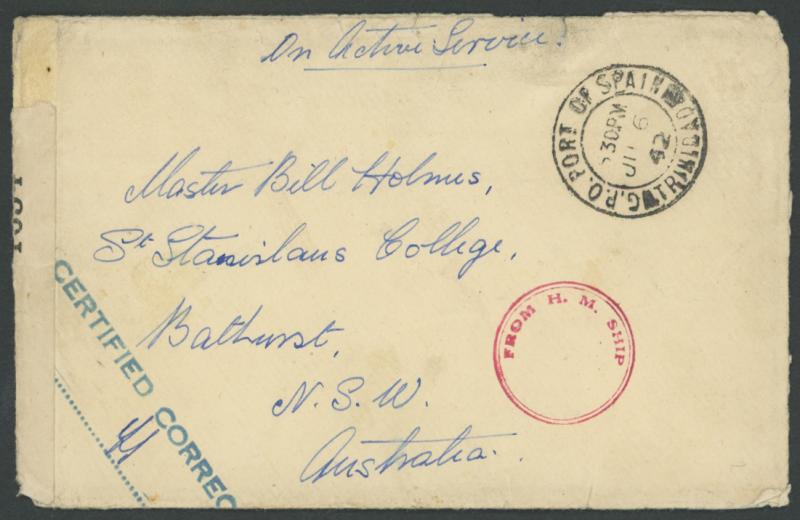 On Active Service.
G.P.O. PORT OF SPAIN TRINIDAD
530PM
6
42
Master Bill Holmes,
St Stanislaus College,
Bathurst,
N. S. W.
Australia.
FROM H. M. SHIP
CERTIFIED CORREC